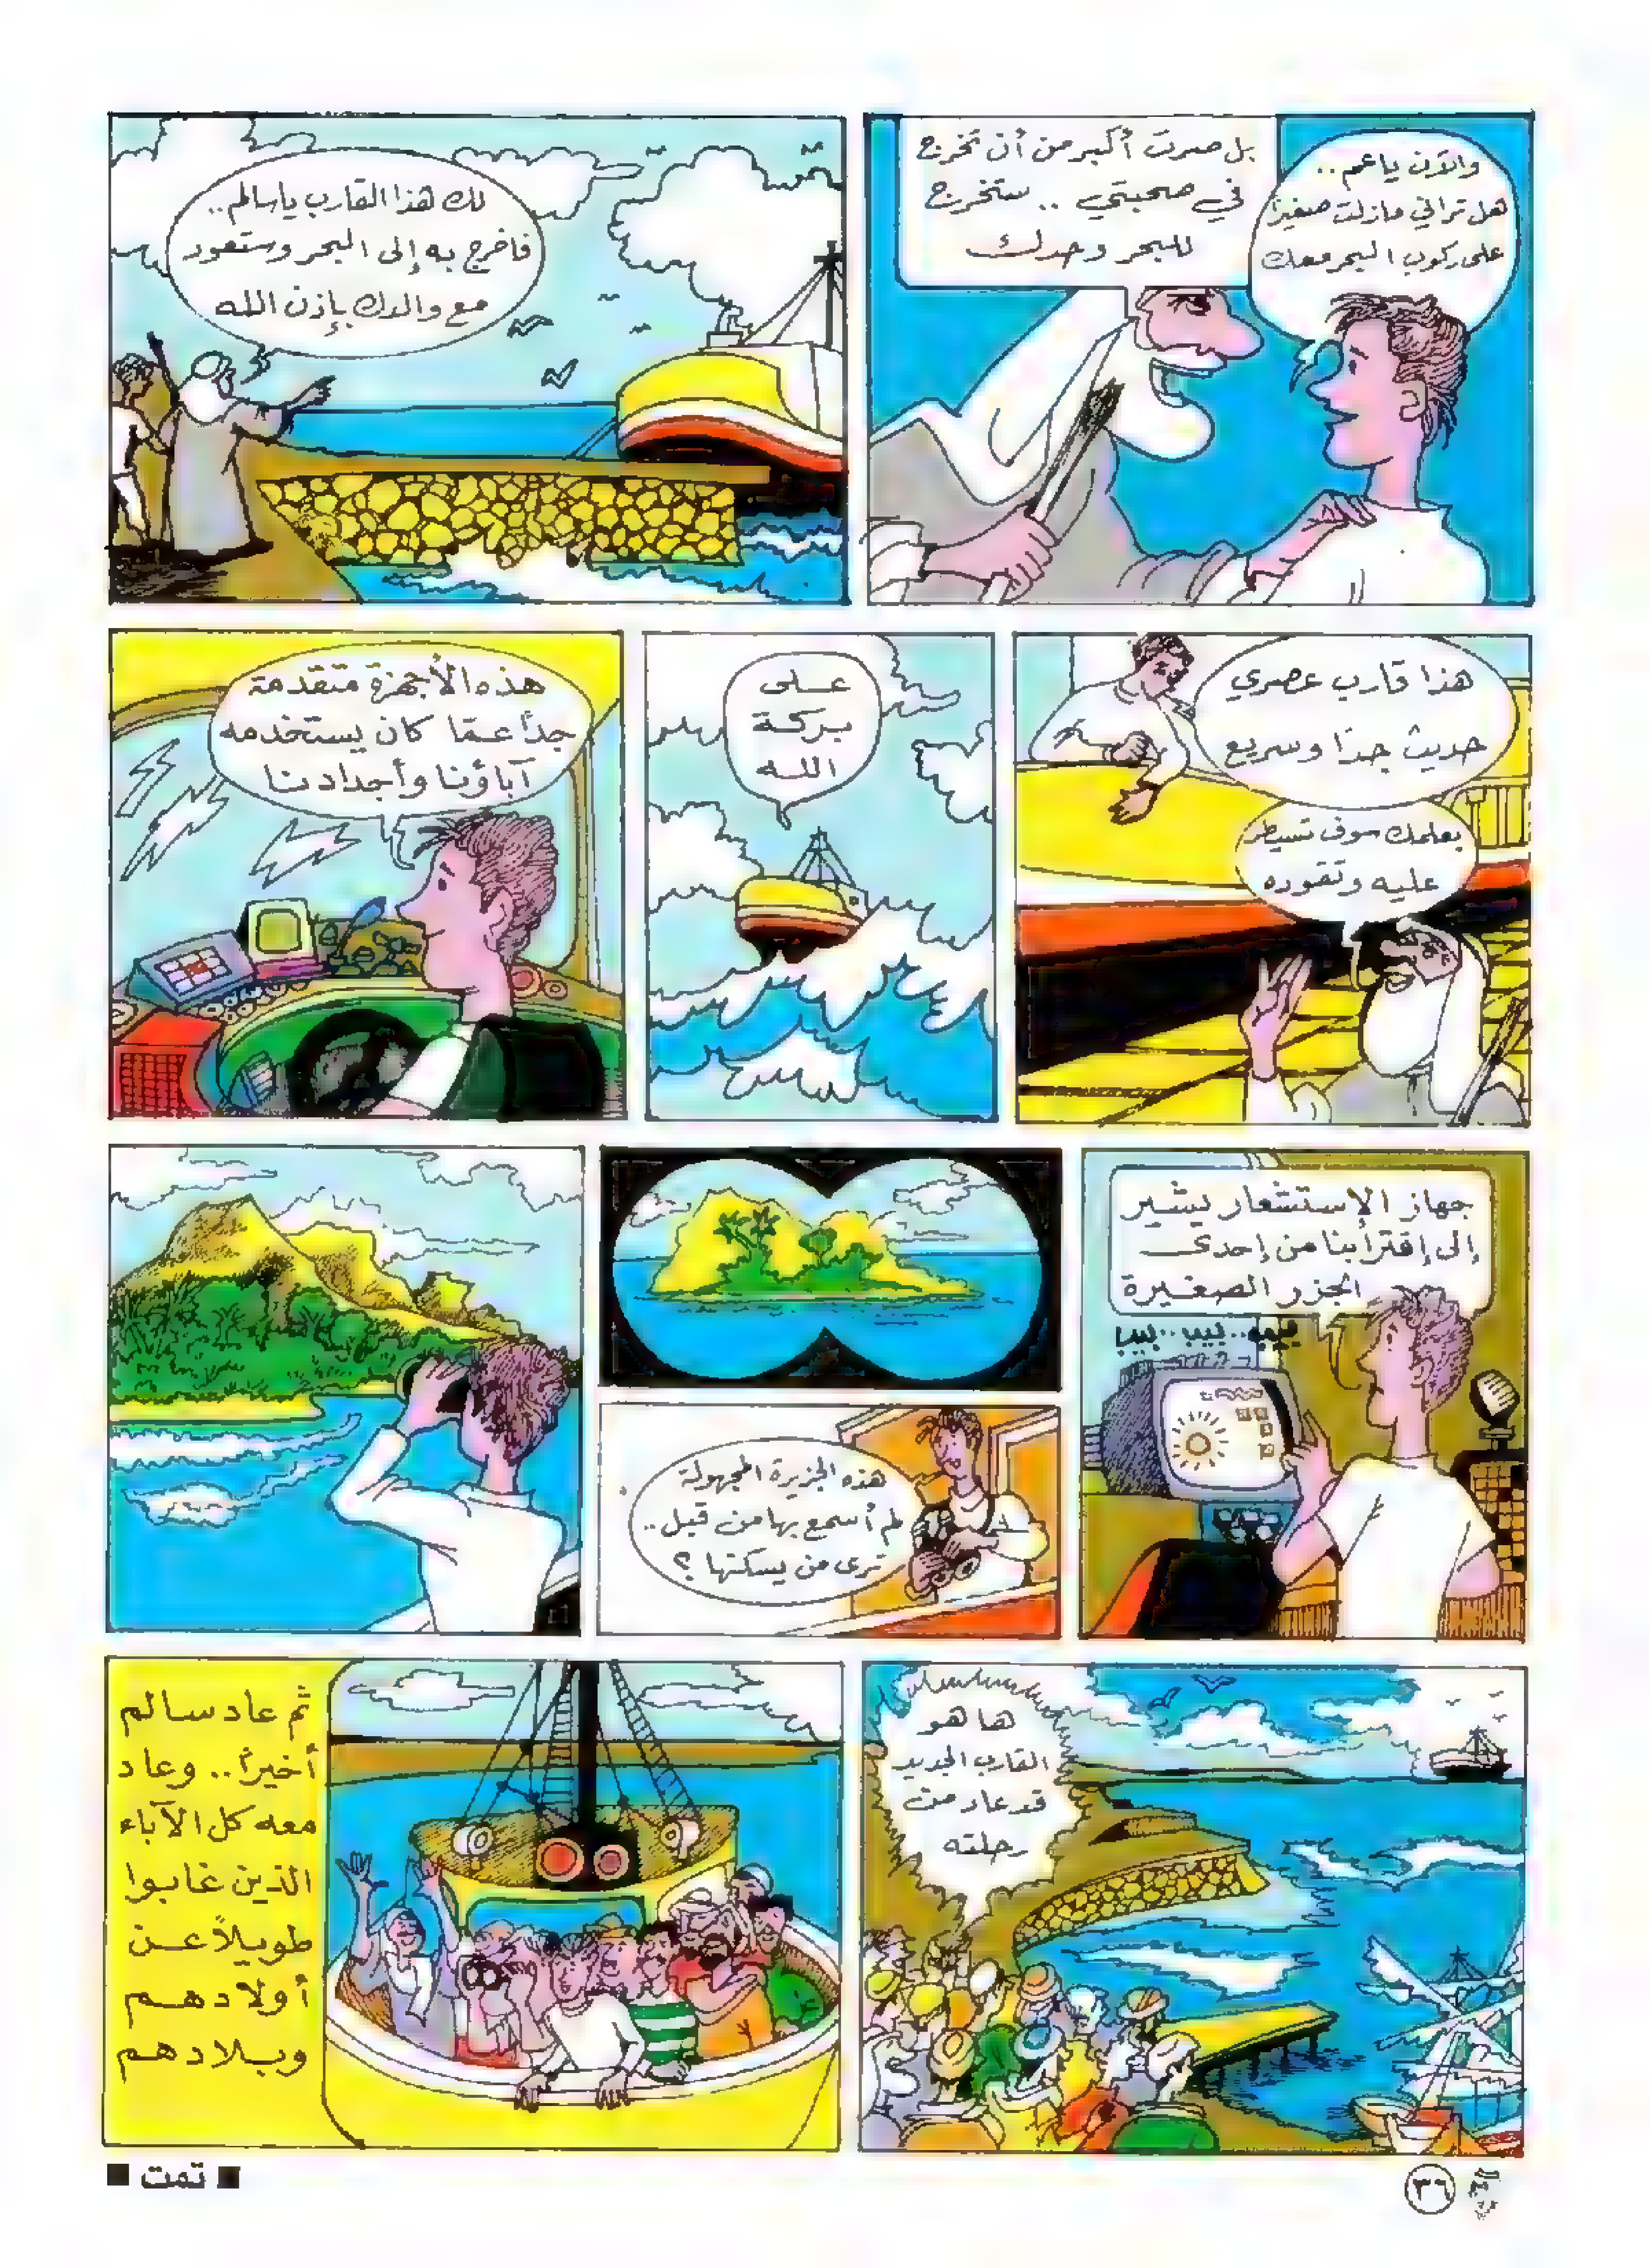 والآن ياعم..
هل تراني مازلت صغيرًا
على ركوب البحر معك
بل صرت أكبر من أن تخرج
في صحبتي .. ستخرج
للبحر وحدك
لك هذا القارب ياسالم..
فاخرج به إلى البحر وستعود
مع والدك بإذن الله
هذا قارب عصري
حديث جدًا وسريع
بعلمك سوف تسيطر
عليه وتقوده
على
بركة
الله
هذه الأجهزة متقدمة
جدًا عمّا كان يستخدمه
آباؤنا وأجدادنا
جهاز الإستشعار يشير
إلى إقترابنا من إحدى
الجزر الصغيرة
بيب..بيب..بيب
هذه الجزيرة المجهولة
لم أسمع بها من قبل..
ترى من يسكنها ؟
ها هو
القارب الجديد
قد عاد من
رحلته
ثم عاد سالم
أخيرًا.. وعاد
معه كل الآباء
الذين غابوا
طويلاً عن
أولادهم
وبلادهم
تمت
٣٦